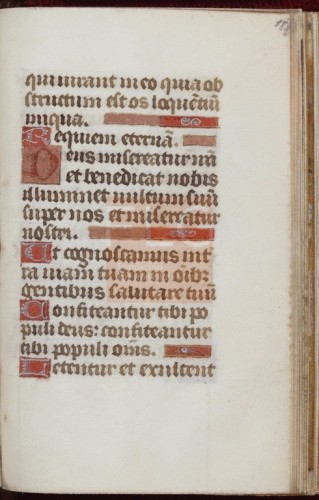 qui iurant in eo quia ob
structum est os loquētiū
iniqua.
Requiem eternā.
Deus misereatur nrī
et benedicat nobis
illuminet vultum suū
super nos et misereatur
nostri.
Ut cognoscamus in t
ra uiam tuam in oībꝫ
gentibus salutare tuū
Confiteantur tibi po
puli deus: confiteantur
tibi populi om̄s.
Letentur et exultent